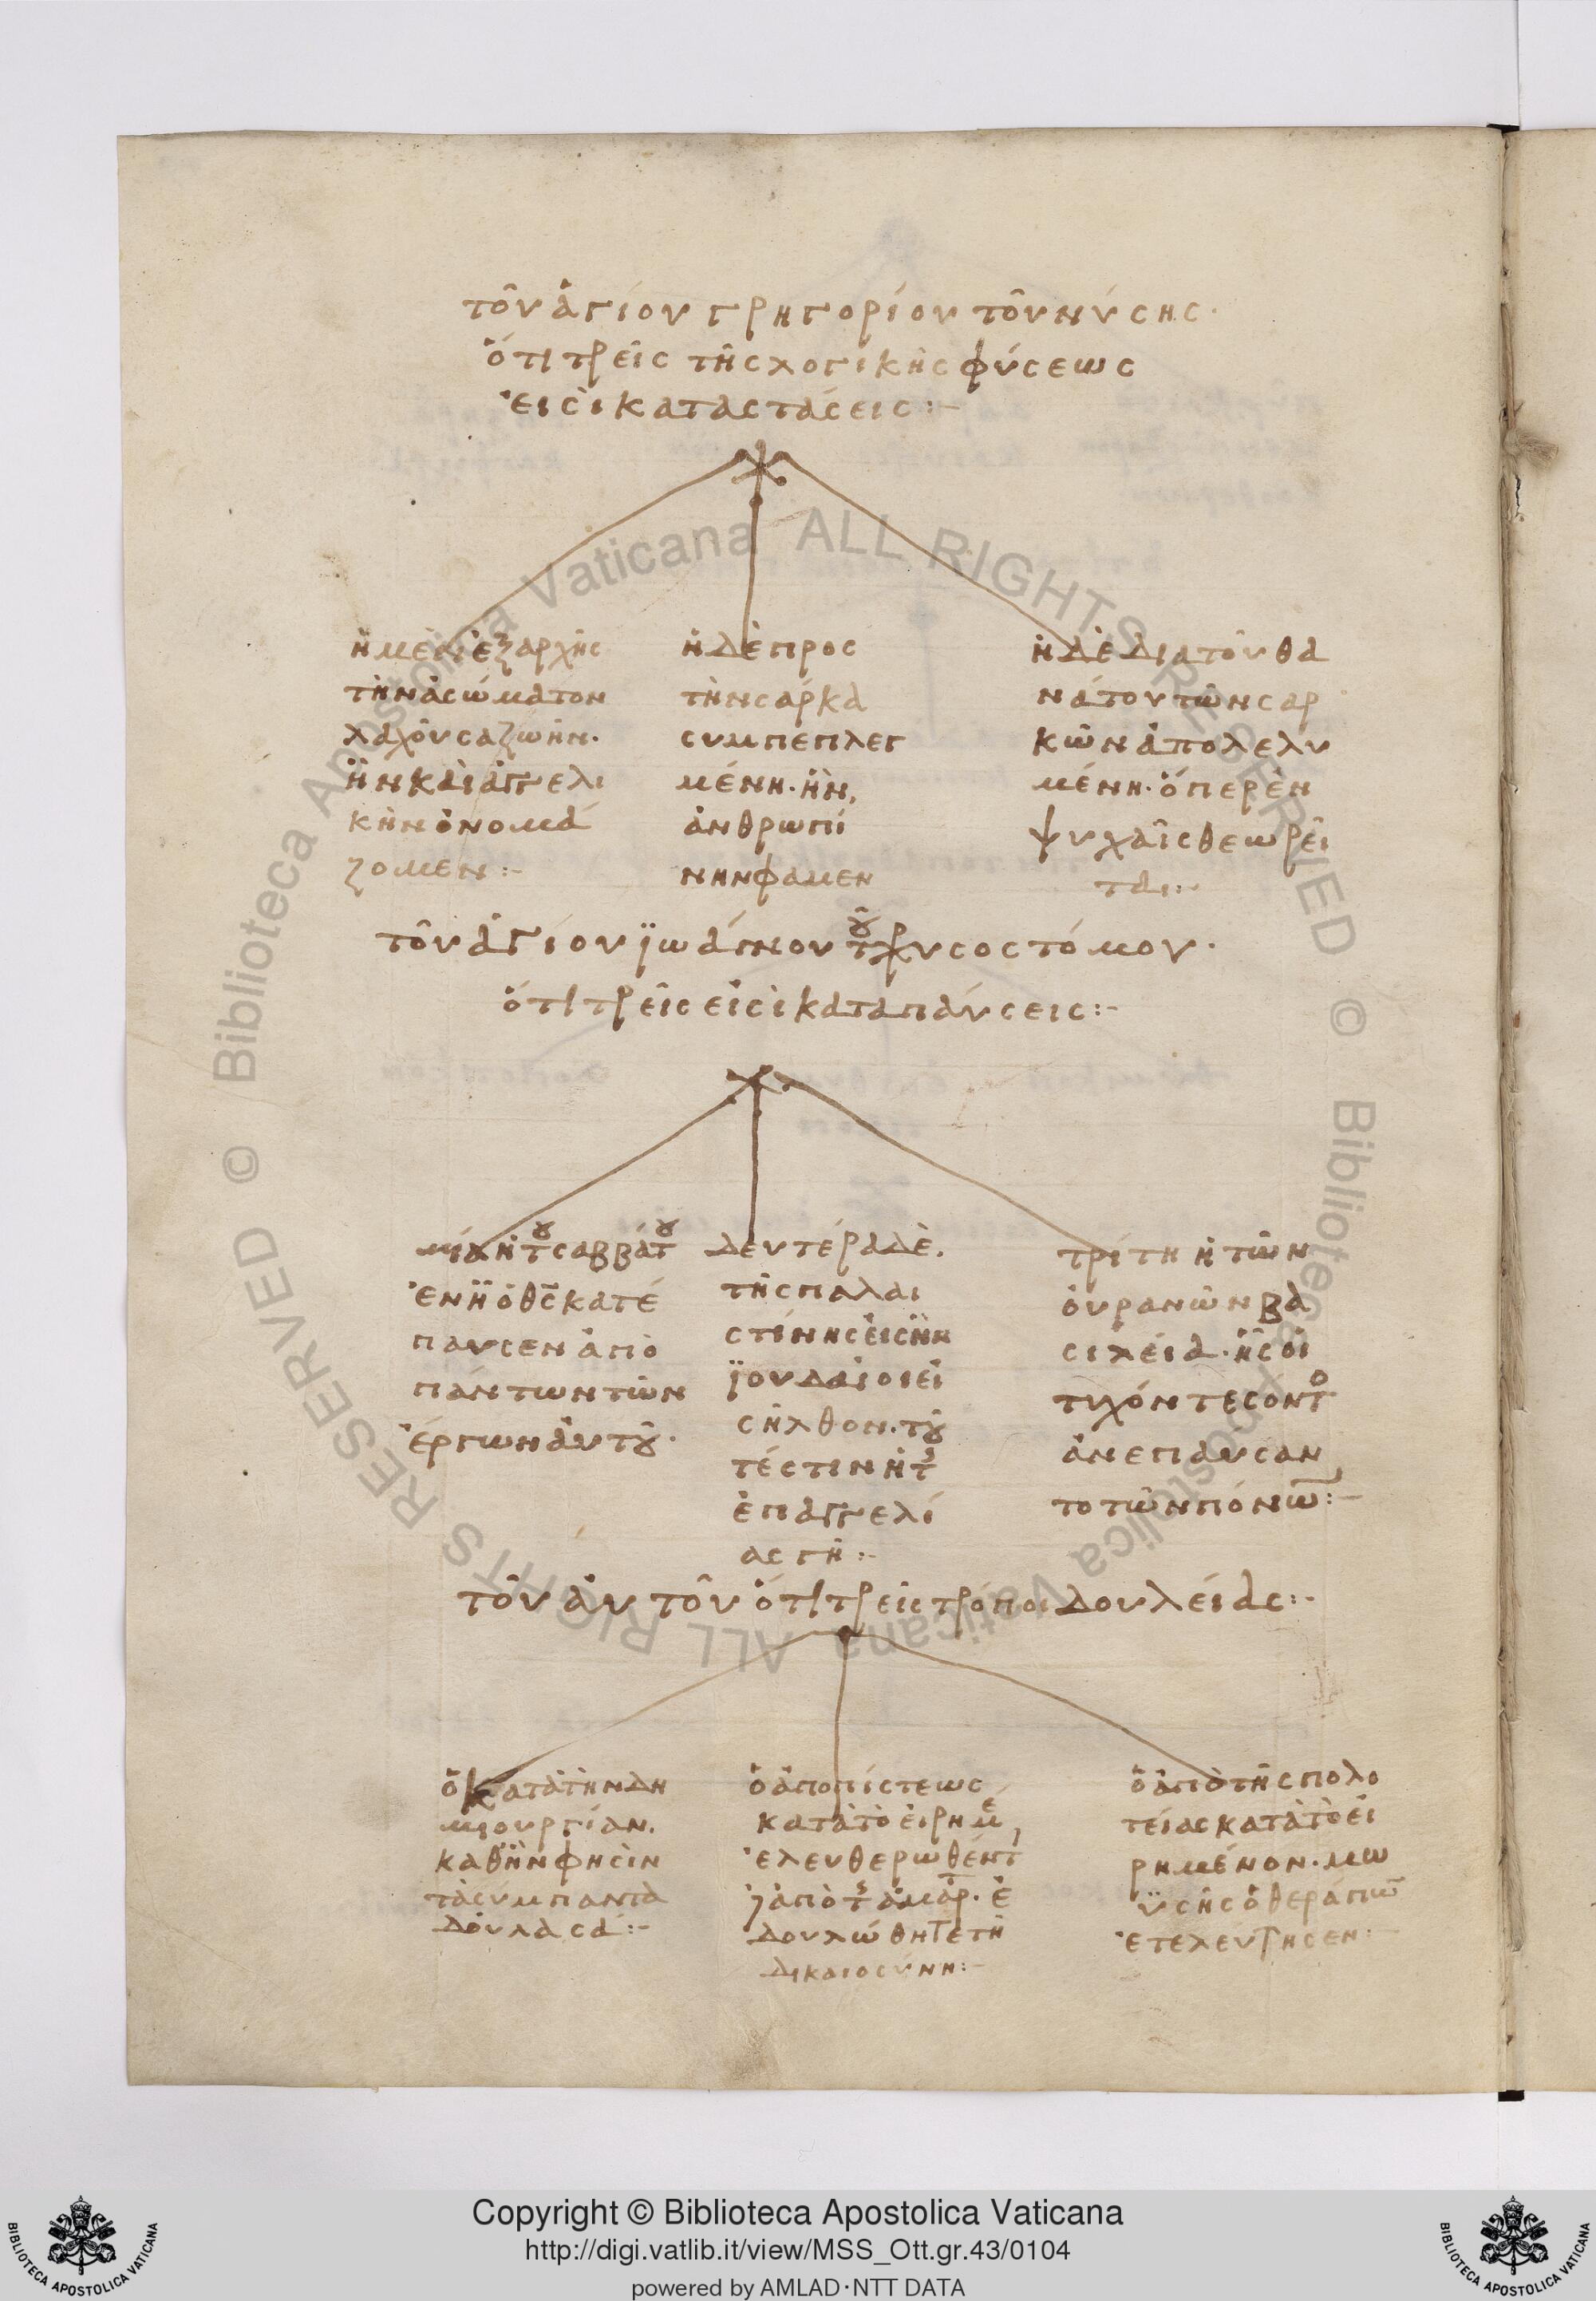 τοῦ ἁγίου γρηγορίου τοῦ νύσης·
ὅτι τρεῖς τῆς λογικῆς φύσεως
εἰσὶ καταστάσεις:–
ἡ μὲν ἐξαρχῆς
τὴν ἀσώματον
λαχοῦσα ζωήν·
ἣν καὶ ἀγγελι
κὴν ὀνομά
ζομεν:–
ἡ δὲ προς
τὴν σάρκα
συμπεπλεγ
μένη· ἣν,
ἀνθρωπί
νην φαμεν
ἡ δὲ δια τοῦ θα
νάτου τῶν σαρ
κῶν ἀπολελυ
μένη· ὅπερ ἐν
ψυχαῖς θεωρεῖ
ται:–
τοῦ ἁγίου ϊωάννου τοῦ χρυσοστόμου·
ὅτι τρεῖς εἰσὶ καταπαύσεις:–
μία ἡ του σαββάτου
ἐν ἧ ὁ θς κατέ
παυσεν ἀπὸ
πάντων τῶν
ἔργων ἀυτοῦ·
δευτέρα δὲ.
τῆς παλαι
στίνης εἰς ἣν
ϊουδαίοι εἰ
σῆλθον· του
τέστιν ἡ τῆς
ἐπαγγελί
ας γῆ:–
τρίτη ἡ τῶν
οὐρανῶν βα
σιλεία· ἧς οἱ
τυχόντες οντο
ἀνεπαυσαν
το τῶν πόνων:–
τοῦ ἀυτοῦ ὅτι τρεῖς τρόποι δουλείας:–
ὁ κατὰ τὴν δη
μιουργίαν.
καθ ἣν φησὶν
τὰ σύμπαντα
δοῦλα σά:–
ὁ ἀπο πίστεως
κατὰ τὸ εἰρημέ,
ἐλευθερωθέντ
ἀπὸ τῆς ἁμαρ· ἐ
δουλώθητε τῆ
δικαιοσύνη:–
ὁ ἀπὸ τῆς πολι
τείας κατὰ τὸ εἰ
ρημένον· μω
ϋσῆς ὁ θεράπων
ἐτελεύτησεν:
Copyright © Biblioteca Apostolica Vaticana
http://digi.vatlib.it/view/MSS_Ott.gr.43/0104
powered by AMLAD·NTT DATA
BIBLIOTECA APOSTOLICA VATICANA
BIBLIOTECA APOSTOLICA VATICANA
© Biblioteca Apostolica Vaticana ALL RIGHTS RESERVED © Biblioteca Apostolica Vaticana ALL RIGHTS RESERVED